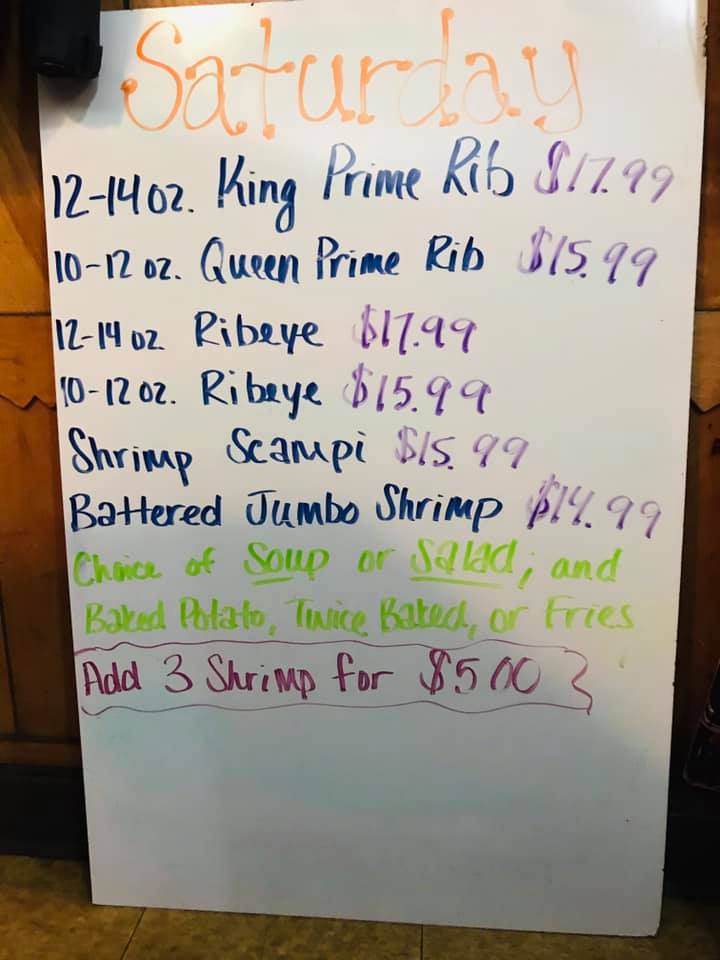 Saturday
12-14 oz. King Prime Rib $17.99
10-12 oz. Queen Prime Rib $15.99
12-14 oz Ribeye $17.99
10-12 oz. Ribeye $15.99
Shrimp Scampi $15.99
Battered Jumbo Shrimp $14.99
Choice of Soup or Salad; and
Baked Potato, Twice Baked, or Fries
Add 3 Shrimp for $5.00